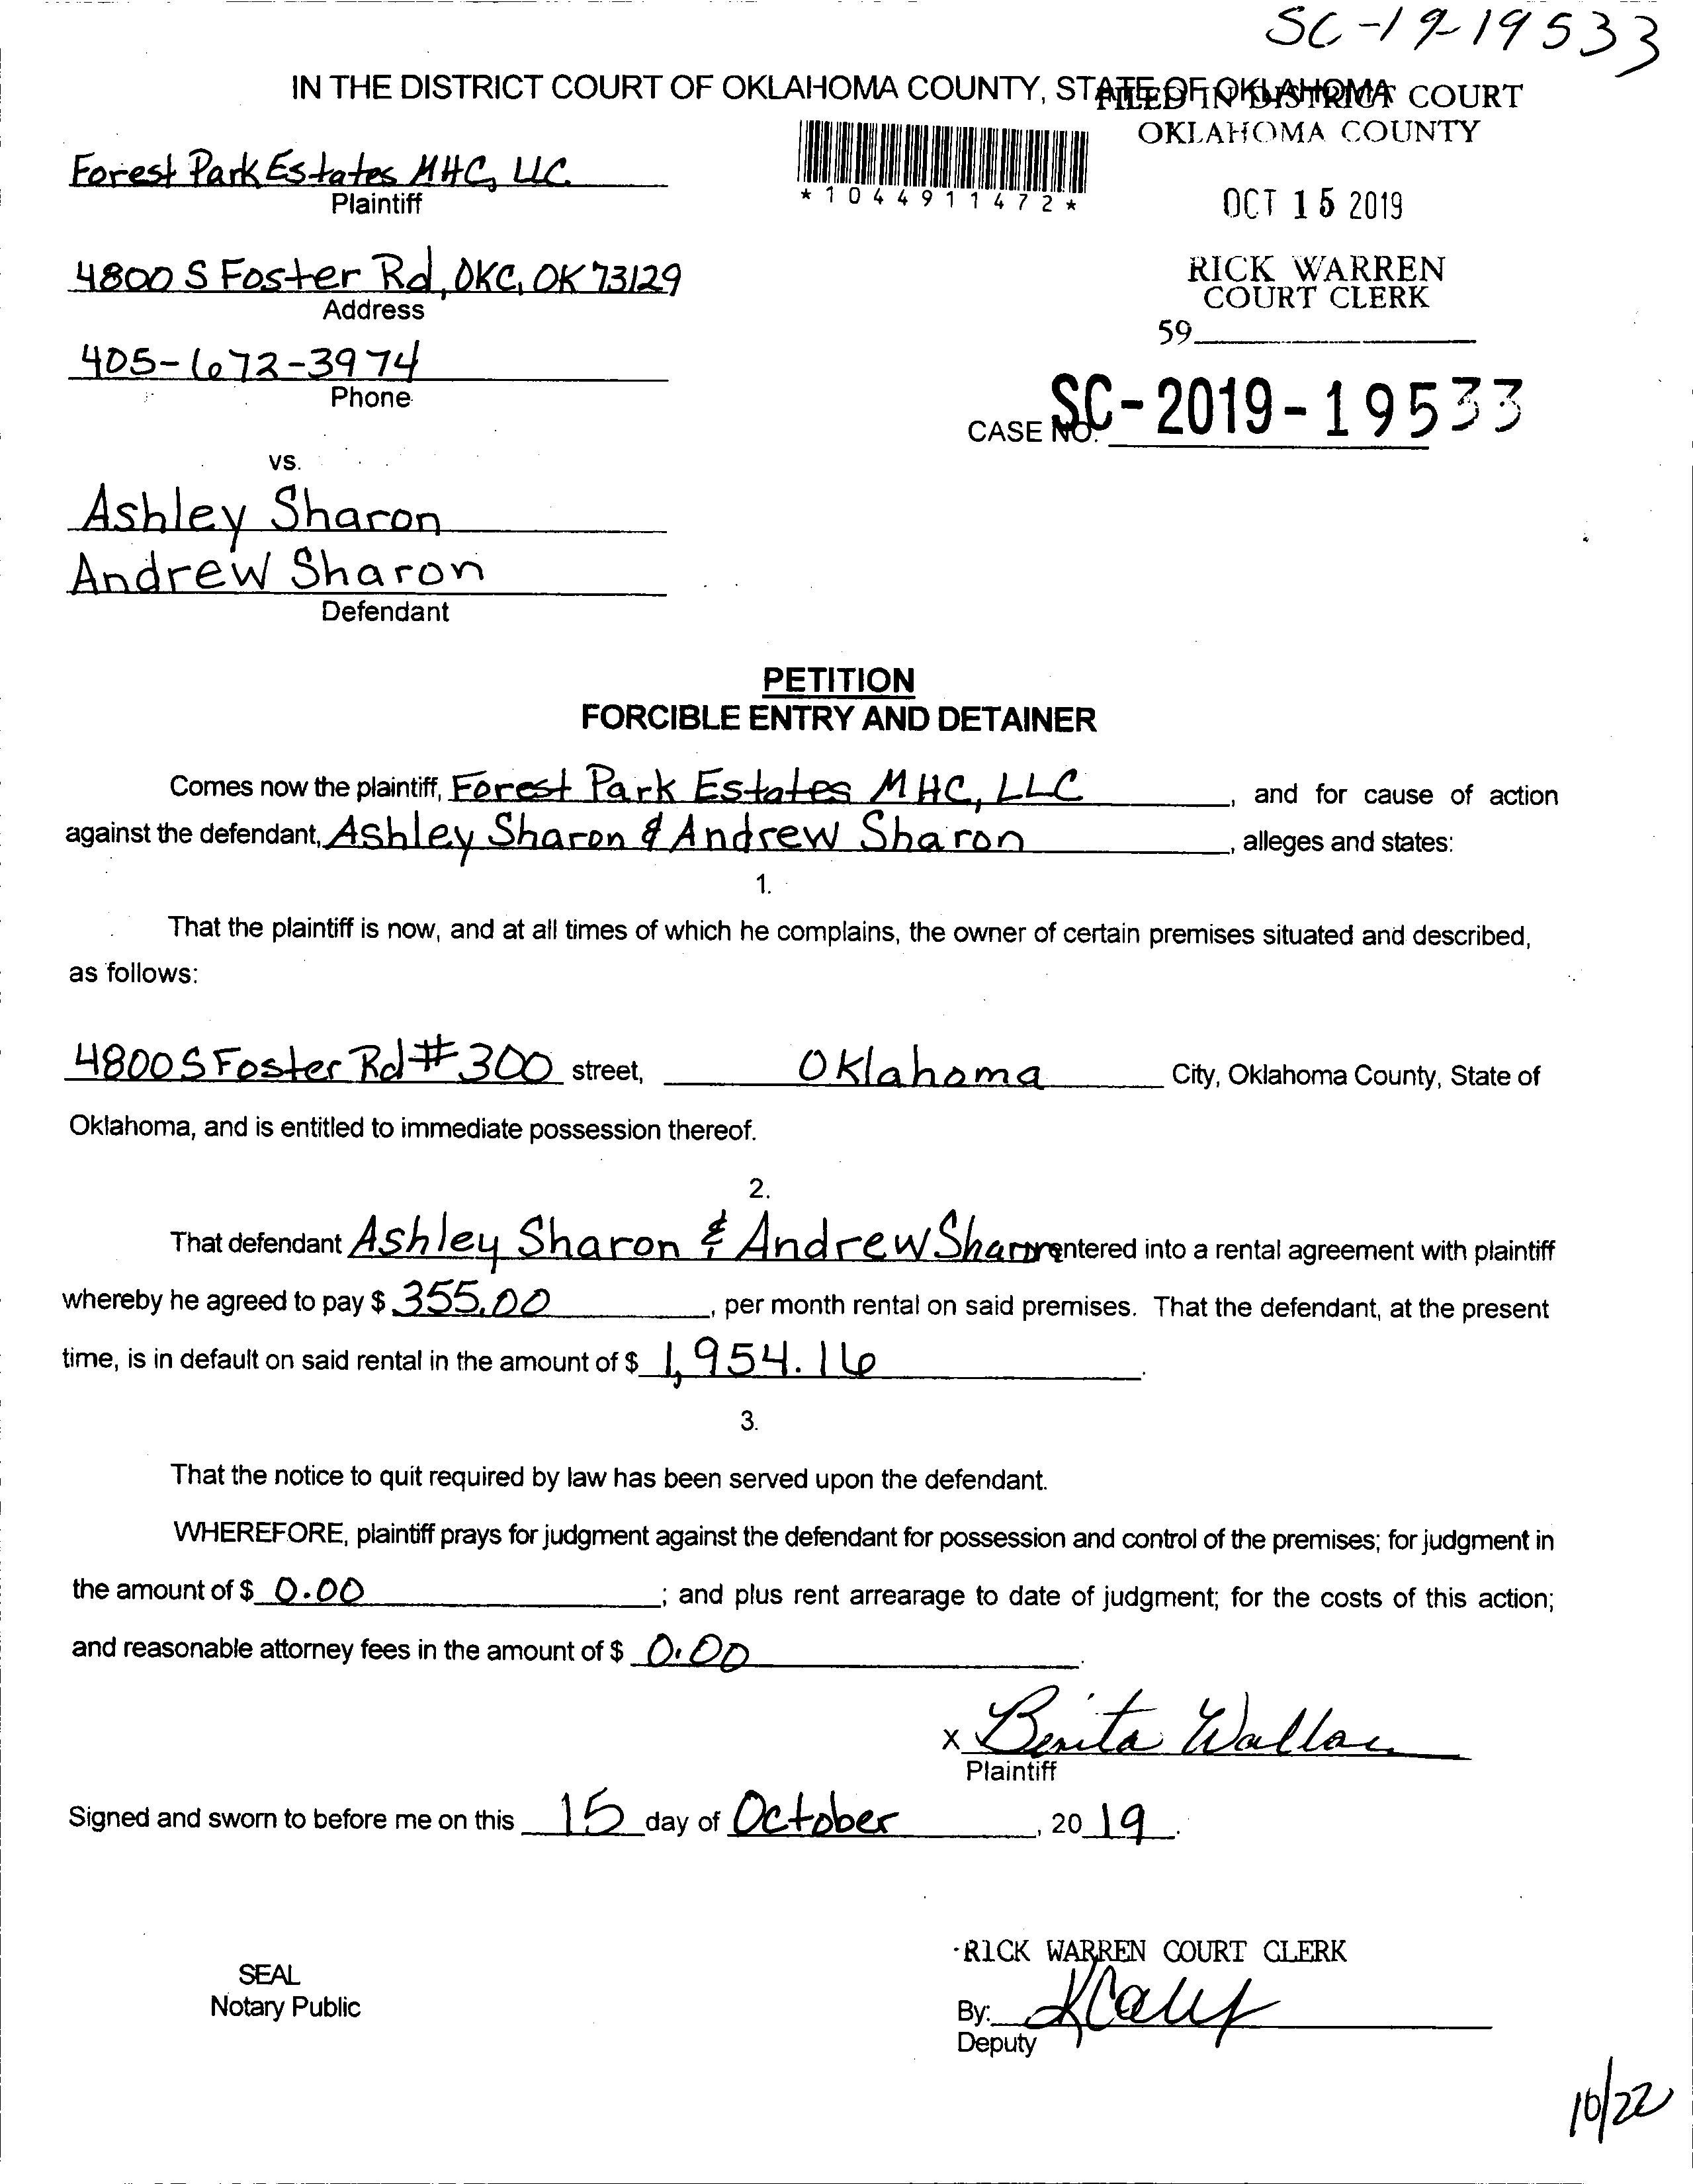 SC-19-19533
IN THE DISTRICT COURT OF OKLAHOMA COUNTY, STATE OF OKLAHOMA
FILED IN DISTRICT COURT
OKLAHOMA COUNTY
Forest Park Estates MHC, LLC
Plaintiff
*1044911472*
OCT 15 2019
4800 S Foster Rd, OKC, OK 73129
Address
RICK WARREN
COURT CLERK
59
405-672-3974
Phone
CASE NO. SC-2019-19533
vs.
Ashley Sharon
Andrew Sharon
Defendant
PETITION
FORCIBLE ENTRY AND DETAINER
Comes now the plaintiff, Forest Park Estates MHC, LLC, and for cause of action
against the defendant, Ashley Sharon & Andrew Sharon, alleges and states:
1.
That the plaintiff is now, and at all times of which he complains, the owner of certain premises situated and described,
as follows:
4800 S Foster Rd # 300 street, Oklahoma City, Oklahoma County, State of
Oklahoma, and is entitled to immediate possession thereof.
2.
That defendant Ashley Sharon & Andrew Sharon entered into a rental agreement with plaintiff
whereby he agreed to pay $ 355.00, per month rental on said premises. That the defendant, at the present
time, is in default on said rental in the amount of $ 1,954.16.
3.
That the notice to quit required by law has been served upon the defendant.
WHEREFORE, plaintiff prays for judgment against the defendant for possession and control of the premises; for judgment in
the amount of $ 0.00; and plus rent arrearage to date of judgment; for the costs of this action;
and reasonable attorney fees in the amount of $ 0.00.
x Benita Wallace
Plaintiff
Signed and sworn to before me on this 15 day of October, 20 19.
RICK WARREN COURT CLERK
SEAL
Notary Public
By:
Deputy
10/22